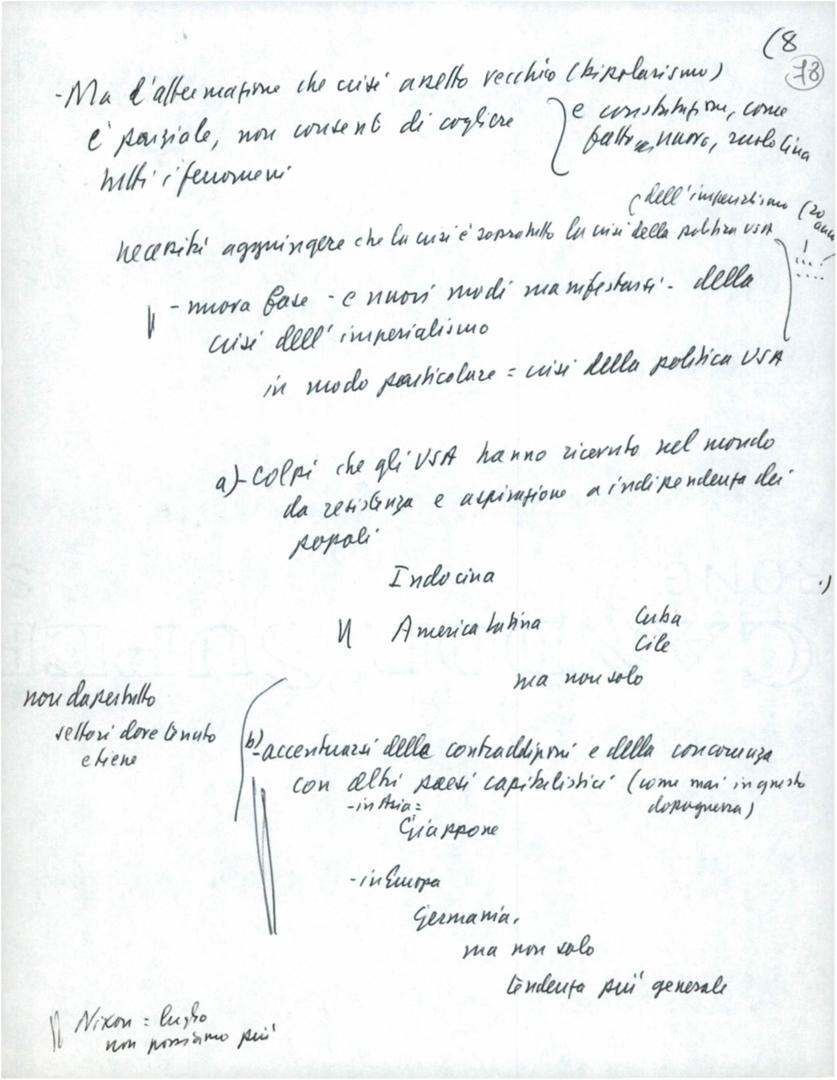 (8
78
- Ma l'affermazione che crisi assetto vecchio (bipolarismo)
è parziale, non consente di cogliere
tutti i fenomeni
e constatazione, come
fatto nuovo, ruolo Cina
(dell'imperialismo (20 anni
!
necessità aggiungere che la crisi è soprattutto la crisi della politica USA
- nuova fase - e nuovi modi manifestarsi - della
crisi dell'imperialismo
in modo particolare = crisi della politica USA
a) - Colpi che gli USA hanno ricevuto nel mondo
da resistenza e aspirazione a indipendenza dei
popoli
Indocina
America latina Cuba
Cile
ma non solo
non dapertutto
settori dove tenuto
e tiene
b) - accentuarsi delle contraddizioni e della concorrenza
con altri paesi capitalistici (come mai in questo
dopoguerra)
- in Asia =
Giappone
- in Europa
Germania,
ma non solo
tendenza più generale
Nixon = luglio
non possiamo più